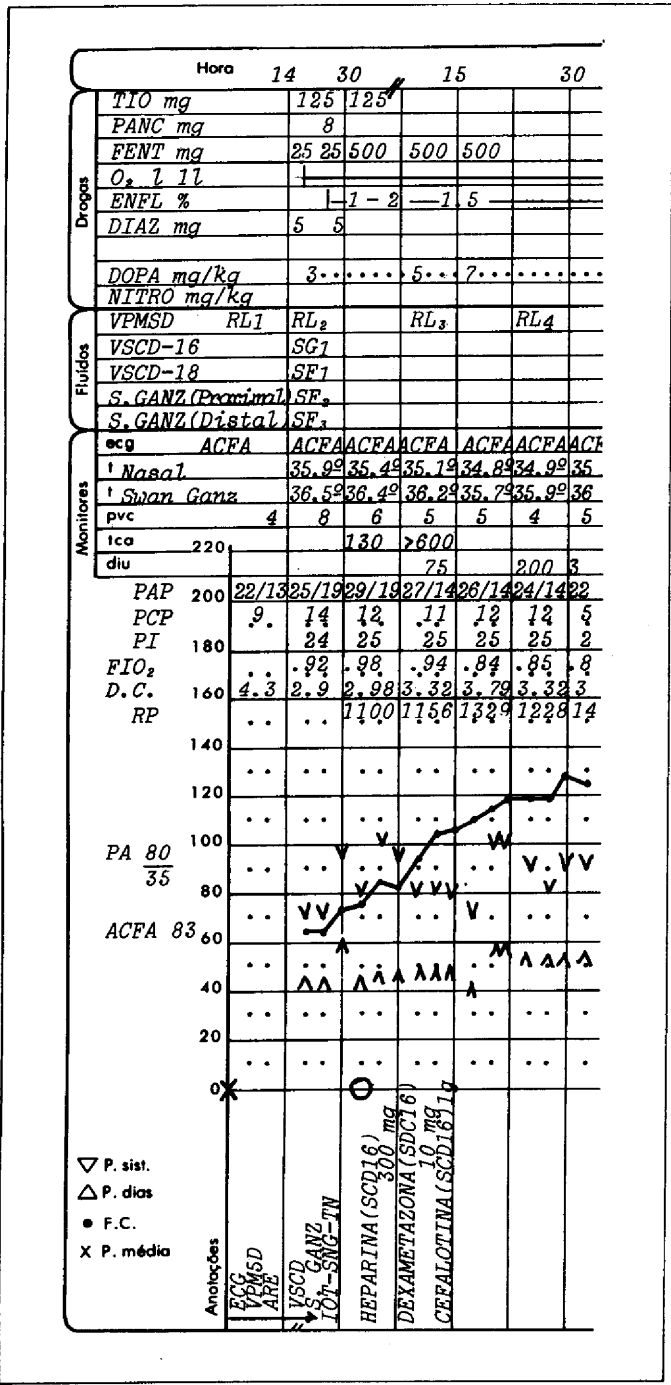 Hora 14 30 15 30
Drogas
TIO mg 125 125
PANC mg 8
FENT mg 25 25 500 500 500
O₂ l 1l
ENFL % 1 - 2 1.5
DIAZ mg 5 5
DOPA mg/kg 3 5 7
NITRO mg/kg
Fluidos
VPMSD RL1 RL₂ RL₃ RL4
VSCD-16 SG1
VSCD-18 SF1
S.GANZ(Proximl) SF₂
S.GANZ(Distal) SF₃
Monitores
ecg ACFA ACFA ACFA ACFA ACFA ACFA ACF
t Nasal 35.9º 35.4º 35.1º 34.8º 34.9º 35
t Swan Ganz 36.5º 36.4º 36.2º 35.7º 35.9º 36
pvc 4 8 6 5 5 4 5
tca 130 >600
220
diu 75 200 3
PAP 200 22/13 25/19 29/19 27/14 26/14 24/14 22
PCP 9 14 12 11 12 12 5
PI 180 24 25 25 25 25 2
FIO₂ .92 .98 .94 .84 .85 .8
D.C. 160 4.3 2.9 2.98 3.32 3.79 3.32 3
RP 1100 1156 1329 1228 14
140
120
100
PA 80
35
80
ACFA 83 60
40
20
0
▽ P. sist.
△ P. dias
• F.C.
X P. média
Anotações
ECG
VPMSD
ARE
VSCD
S. GANZ
IOT-SNG-TN
HEPARINA(SCD16)
300 mg
DEXAMETAZONA(SDC16)
10 mg
CEFALOTINA(SCD16)1g